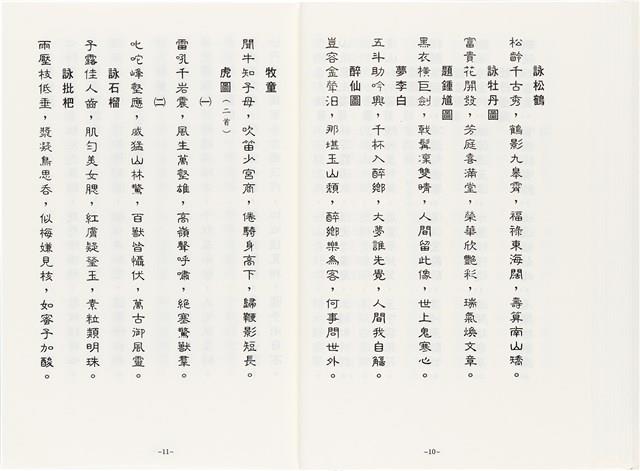 詠松鶴
松齡千古秀，鶴影九皋霄，福祿東海闊，壽算南山矯。
詠牡丹圖
富貴花開發，芳庭喜滿堂，榮華欣艷彩，瑞氣煥文章。
題鍾馗圖
黑衣橫巨劍，戟髯凜雙睛，人間留此像，世上鬼寒心。
夢李白
五斗助吟興，千杯入醉鄉，大夢誰先覺，人間我自觴。
醉仙圖
豈容金罍汨，那堪玉山頹，醉鄉樂為客，何事問世外。
-10-
牧童
開牛知子母，吹笛少宮商，倦騎身高下，歸鞭影短長。
虎圖（二首）
㈠
雷吼千岩震，風生萬壑雄，高嶺聲呼嘯，絕塞驚獸羣。
㈡
叱咤峰壑應，威猛山林驚，百獸皆懾伏，萬古御風靈。
詠石榴
子露佳人齒，肌勻美女腮，紅膚疑瑩玉，素粒類明珠。
詠批杷
雨壓枝低垂，漿凝鳥思吞，似梅嫌見核，如蜜予加酸。
-11-